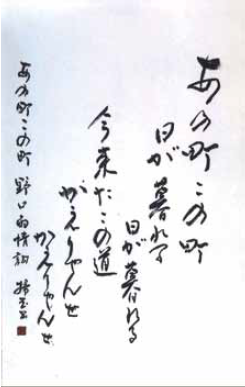 あの町この町
日が暮れる
日が暮れる
今来たこの道
かえりゃんせ
かえりゃんせ
あの町この町 野口雨情詞